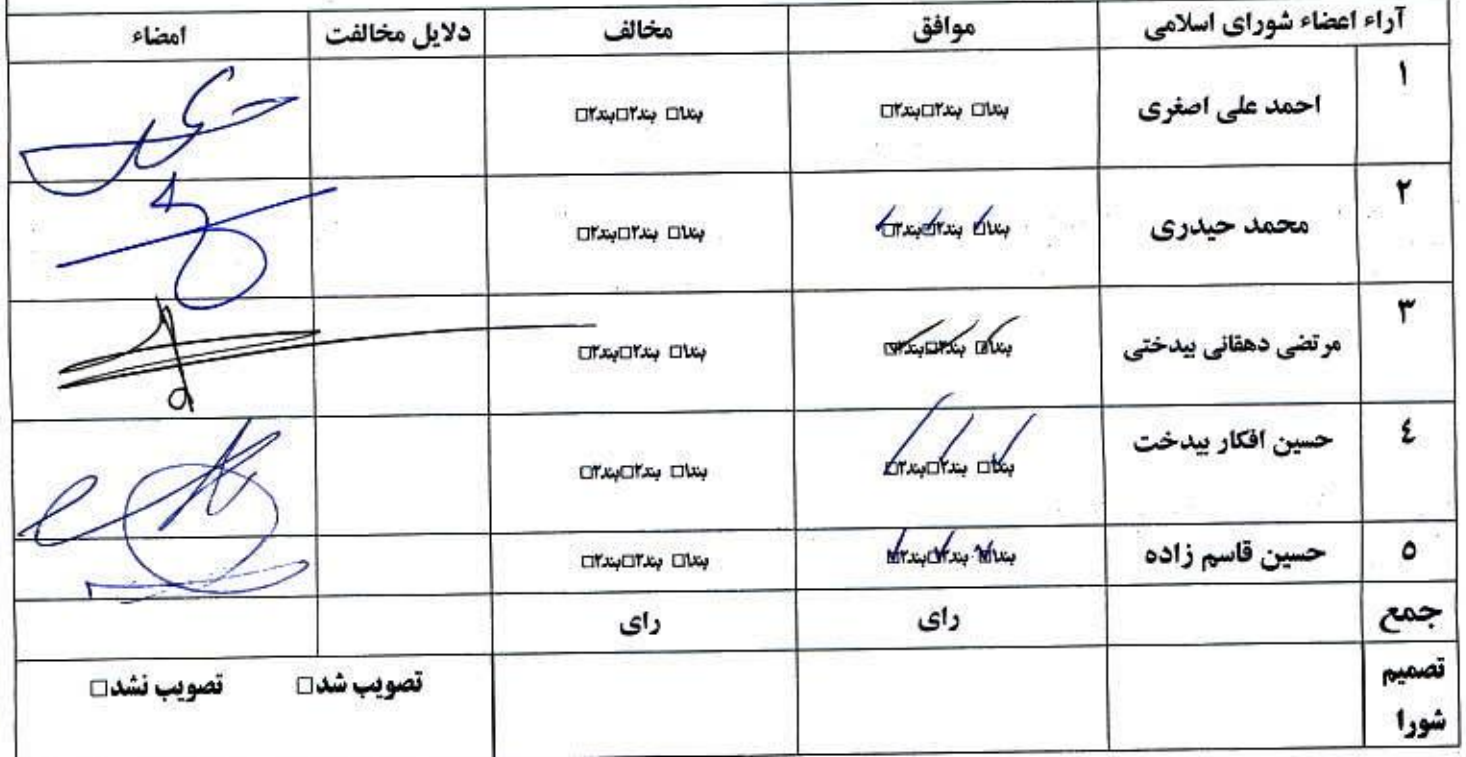 آراء اعضاء شورای اسلامی موافق مخالف دلایل مخالفت امضاء
۱ احمد علی اصغری بند۱□ بند۲□بند۳□ بند۱□ بند۲□بند۳□
۲ محمد حیدری بند۱□ بند۲□بند۳□ بند۱□ بند۲□بند۳□
۳ مرتضی دهقانی بیدختی بند۱□ بند۲□بند۳□ بند۱□ بند۲□بند۳□
٤ حسین افکار بیدخت بند۱□ بند۲□بند۳□ بند۱□ بند۲□بند۳□
٥ حسین قاسم زاده بند۱□ بند۲□بند۳□ بند۱□ بند۲□بند۳□
جمع رای رای
تصمیم شورا تصویب شد□ تصویب نشد□